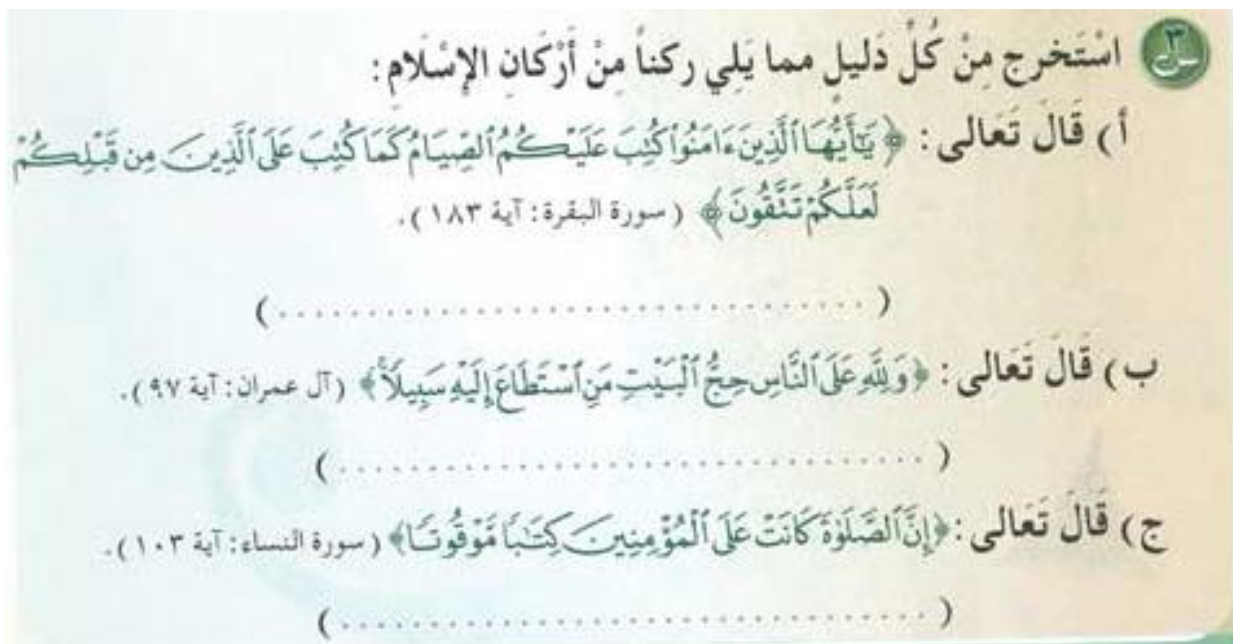 س٣ اسْتَخرِج مِنْ كُلِّ دَليلٍ مما يَلِي ركناً مِنْ أَرْكَانِ الإِسْلَامِ:
أ ) قَالَ تَعَالى : ﴿ يَٰٓأَيُّهَا ٱلَّذِينَ ءَامَنُوا۟ كُتِبَ عَلَيْكُمُ ٱلصِّيَامُ كَمَا كُتِبَ عَلَى ٱلَّذِينَ مِن قَبْلِكُمْ
لَعَلَّكُمْ تَتَّقُونَ ﴾ ( سورة البقرة : آية ١٨٣ ).
( .................................. )
ب ) قَالَ تَعَالى : ﴿ وَلِلَّهِ عَلَى ٱلنَّاسِ حِجُّ ٱلْبَيْتِ مَنِ ٱسْتَطَاعَ إِلَيْهِ سَبِيلًا ﴾ ( آل عمران : آية ٩٧ ).
( .................................. )
ج ) قَالَ تَعَالى : ﴿ إِنَّ ٱلصَّلَوٰةَ كَانَتْ عَلَى ٱلْمُؤْمِنِينَ كِتَٰبًا مَّوْقُوتًا ﴾ ( سورة النساء : آية ١٠٣ ).
( .................................. )